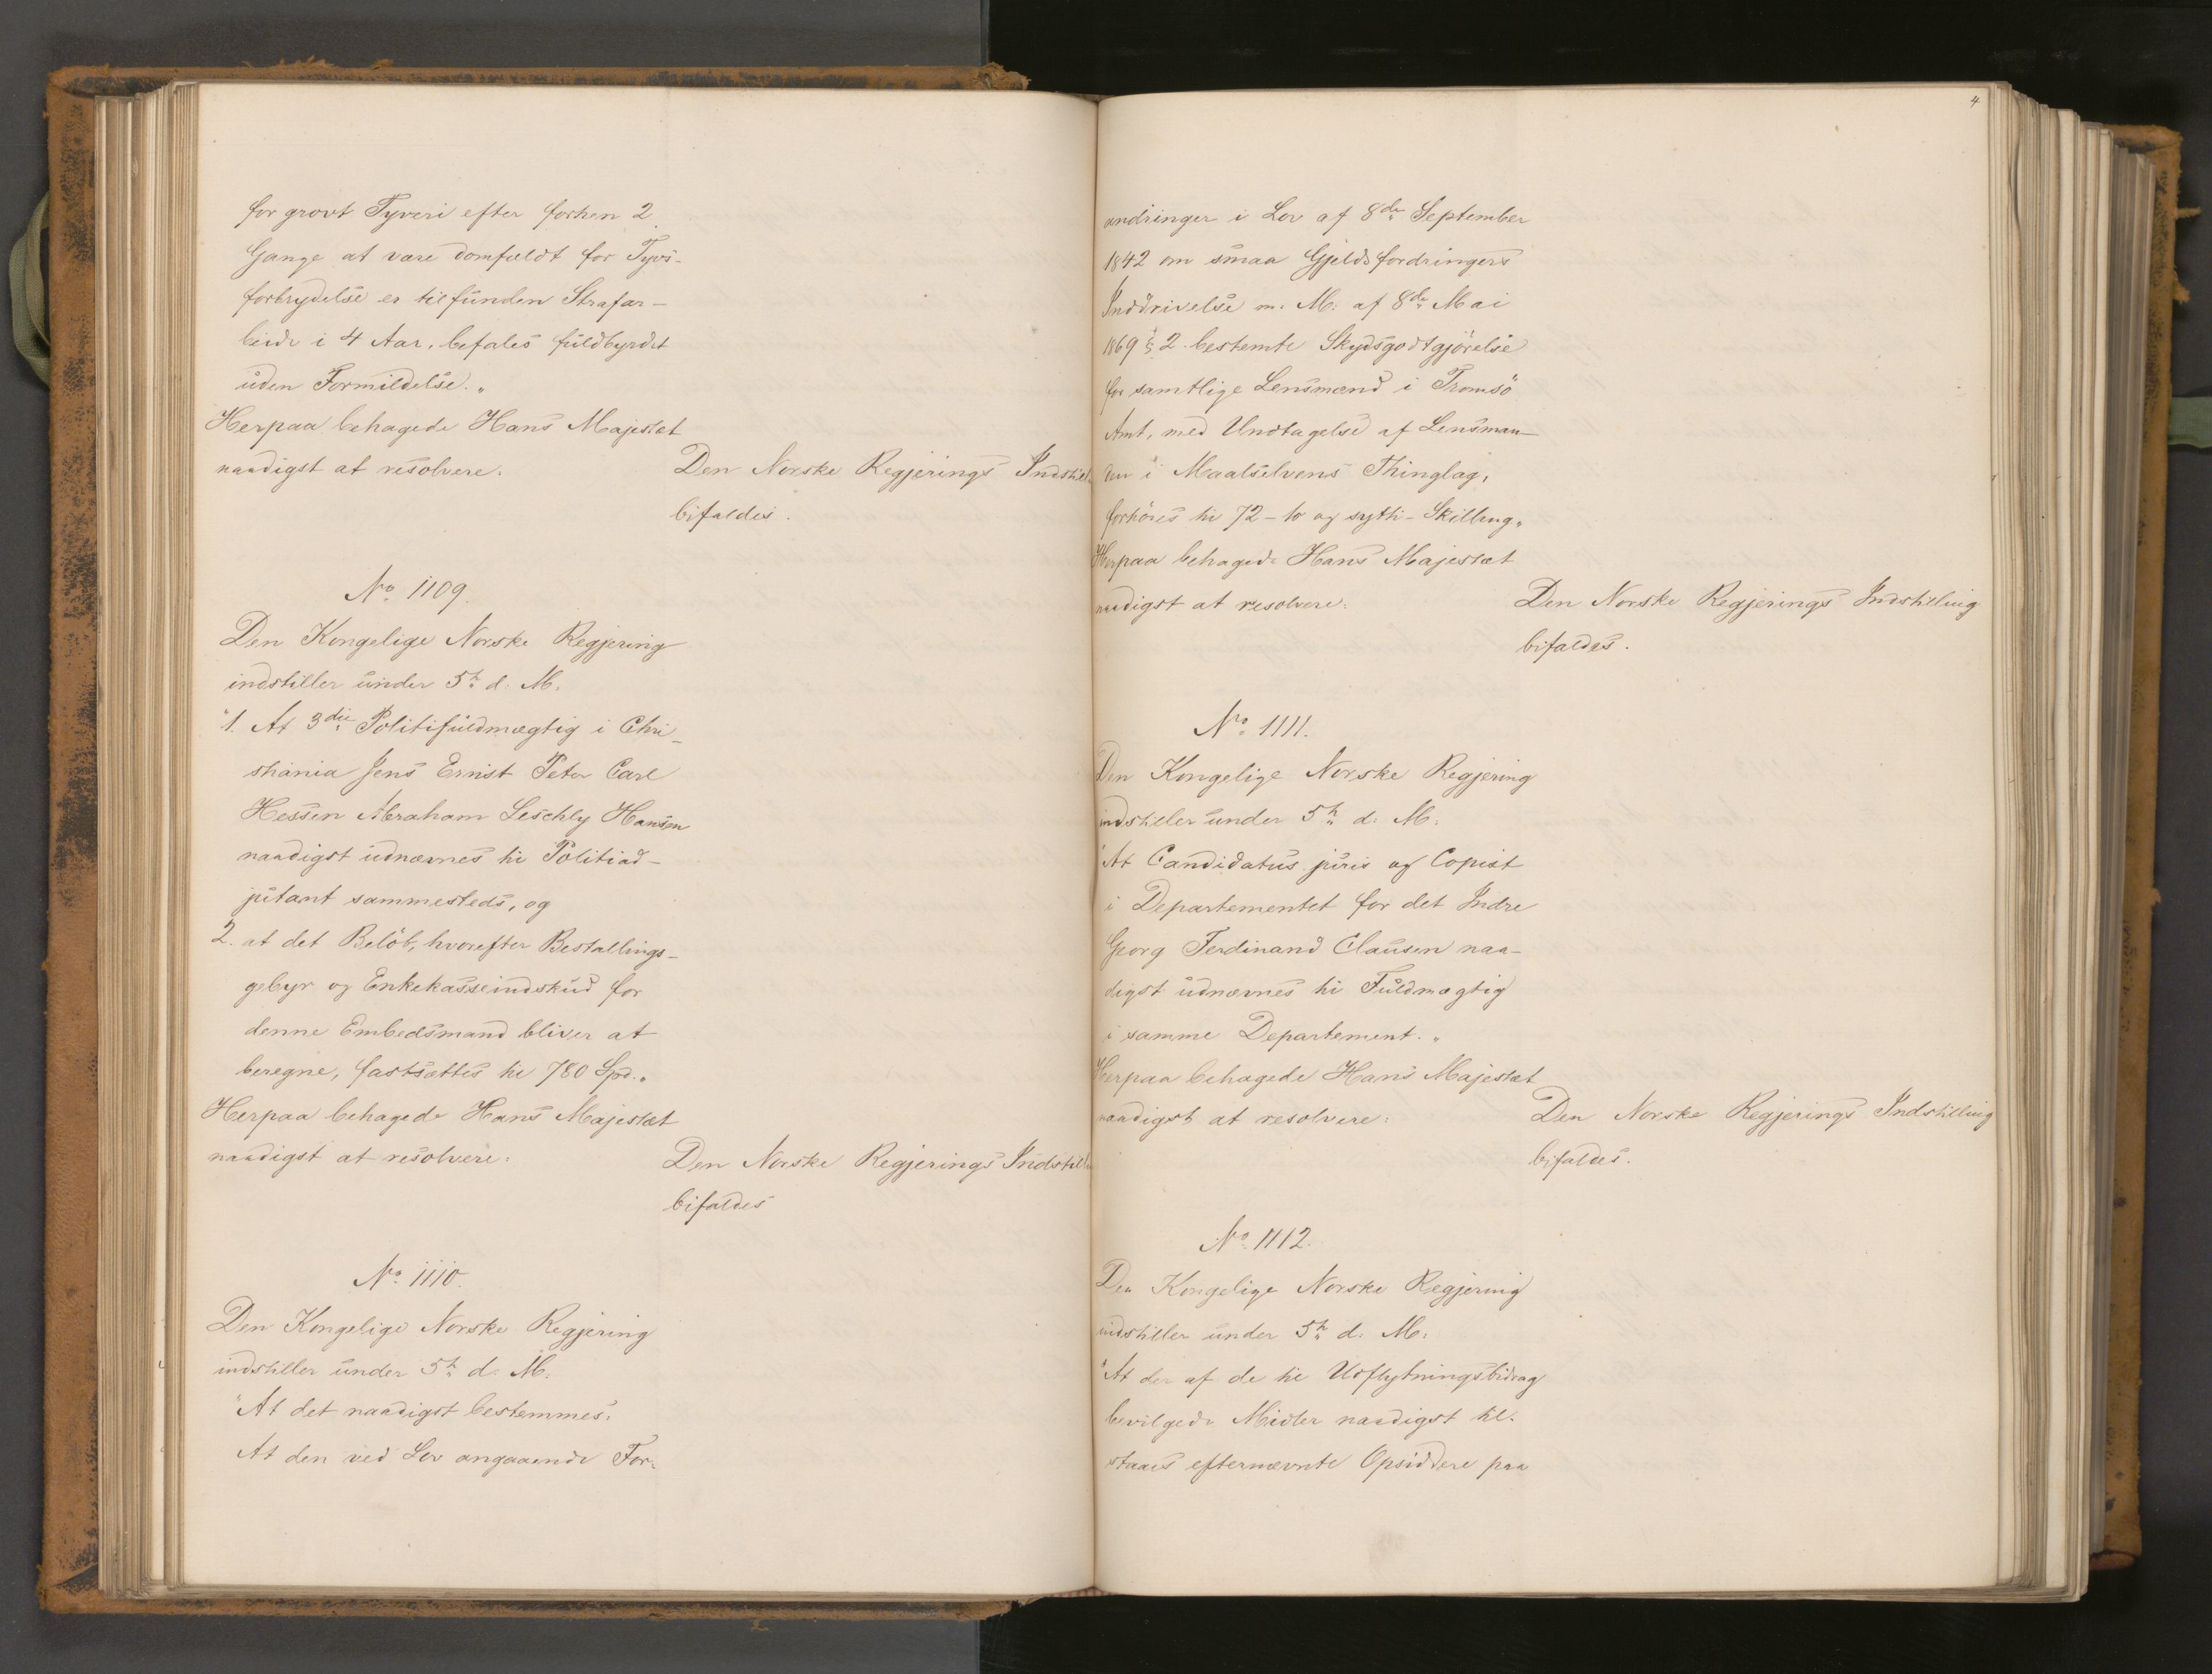 for grovt Tyveri efter forhen 2
Gange at være domfældt for Tyvs-
forbrydelse er tilfunden Strafar-
beide i 4 Aar, befales fuldbyrdet
uden Formildelse."
Herpaa behagede Hans Majestæt
naadigst at resolvere.
Den Norske Regjerings Indstil
bifaldes.
No 1109.
Den Kongelige Norske Regjering
indstiller under 5te d. M.
"1. At 3die Politifuldmægtig i Chri-
stiania Jens Ernst Peter Carl
Hessen Abraham Leschly Hansen
naadigst udnævnes til Politiad-
jutant sammesteds, og
2. at det Belöb, hvorefter Bestallings-
gebyr og Enkekasseindskud for
denne Embedsmand bliver at
beregne, fastsættes til 780 Spd."
Herpaa behagede Hans Majestæt
naadigst at resolvere:
Den Norske Regjerings Indstill
bifaldes
No 1110.
Den Kongelige Norske Regjering
indstiller under 5te d. M.
"At det naadigst bestemmes:
At den ved Lov angaaende For-
4
andringer i Lov af 8de September
1842 om smaa Gjeldsfordringers
Inddrivelse m. M. af 8de Mai
1869 § 2 bestemte Skydsgodtgjörelse
for samtlige Lensmænd i Tromsö
Amt, med Undtagelse af Lensman-
den i Maalselvens Thinglag,
forhöies til 72 - to og sytti - Skilling"
Herpaa behagede Hans Majestæt
naadigst at resolvere:
Den Norske Regjerings Indstilling
bifaldes.
No 1111.
Den Kongelige Norske Regjering
indstiller under 5te d. M.
"At Candidatus juris og Copist
i Departementet for det Indre
Georg Ferdinand Clausen naa-
digst udnævnes til Fuldmægtig
i samme Departement."
Herpaa behagede Hans Majestæt
naadigst at resolvere:
Den Norske Regjerings Indstilling
bifaldes.
No 1112.
Den Kongelige Norske Regjering
indstiller under 5te d. M.
"At der af de til Udflytningsbidrag
bevilgede Midler naadigst til-
staaes efternævnte Opsiddere paa